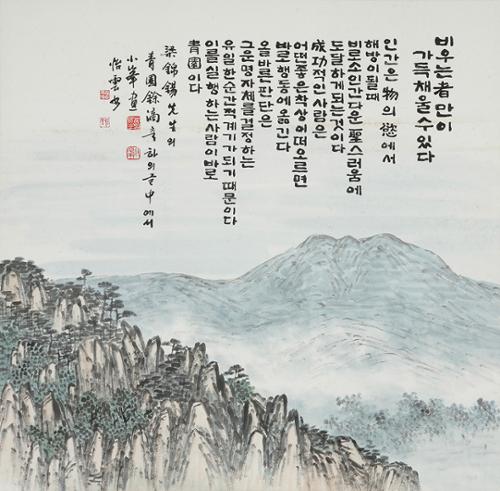 비우는 者만이
가득채울수있다
인간은 物의 慾에서
해방이될때
비로소인간다운聖스러움에
도달하게되는것이다
成功적인사람은
어떤좋은착상이떠오르면
바로행동에옮긴다
올바른판단은
그운명자체를결정하는
유일한순간적계기가되기때문이다
이를실행하는사람이바로
靑園이다
梁錦錫先生의
靑園餘滴 하의 글 中에서
小峯畫
怡雲书